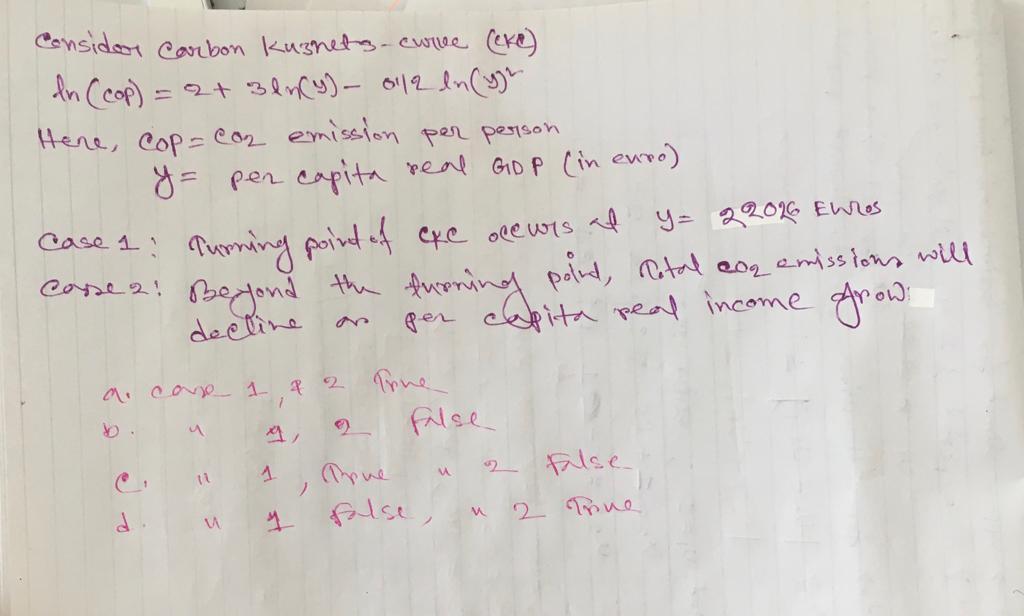 Consider Carbon Kuznets-curve (CKC)
ln(cop) = 2+ 3ln(y) – 0.1/2 ln(y)²
Here, cop = co2 emission per person
y = per capita real GDP (in euro)
Case 1: Turning point of CKC occurs at y = 22026 Euros
Case 2: Beyond the turning point, Total co2 emissions will
decline as per capita real income grow.
a. case 1, & 2 True
b. " 1, 2 False
c. " 1, True " 2 False
d. " 1 False, " 2 True